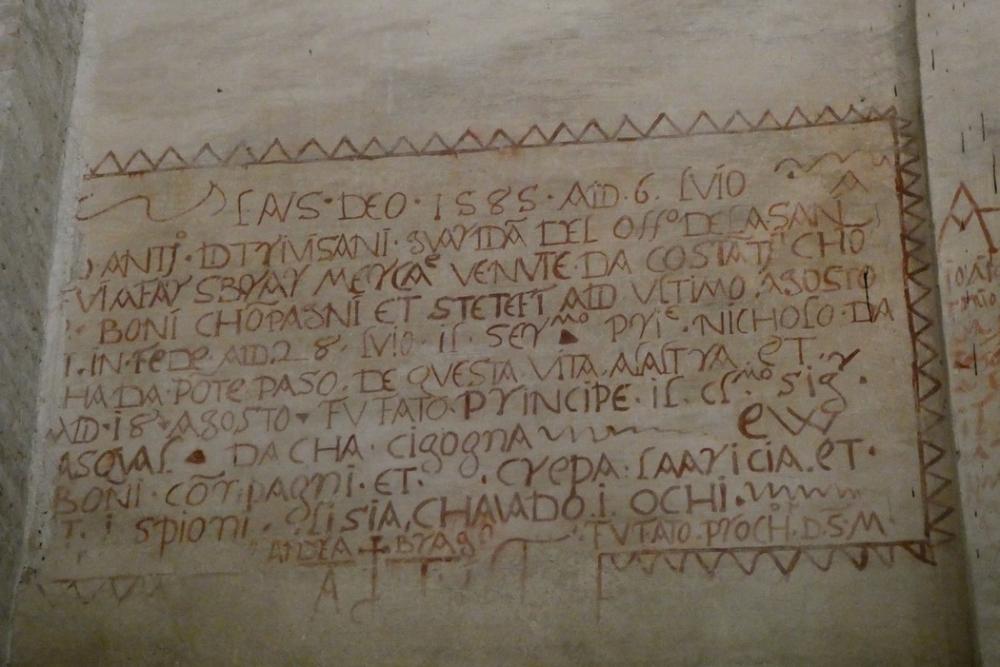 LAUS · DEO · 1585 · AID · 6 · LUIO
ANTO · D TRIVISANI · GUARDA DEL OFFO DE LA SANI
SBORAR MERCAE VENUTE · DA COSTATI CHO
BONI CHOPAGNI ET STETERT AID ULTIMO · AGOSTO
I · IN · FEDE · AID · 28 · LUIO · IL · SERMO PRIE · NICHOLO · DA
HA DA · POTE PASO · DE QUESTA VITA · A LALTRA · ET · R
AID · 18 · AGOSTO · FU FATO · PRINCIPE · IL · CLMO SIGR
ASQUAL DA CHA · CIGOGNA EVVG
BONI · COMPAGNI · ET · CREPA · LAARICIA · ET ·
T · I SPIONI · GLI SIA, CHAVADO · I · OCHI ·
ANDREA BRAGN FU FATO · PROCH · D · S · M ·